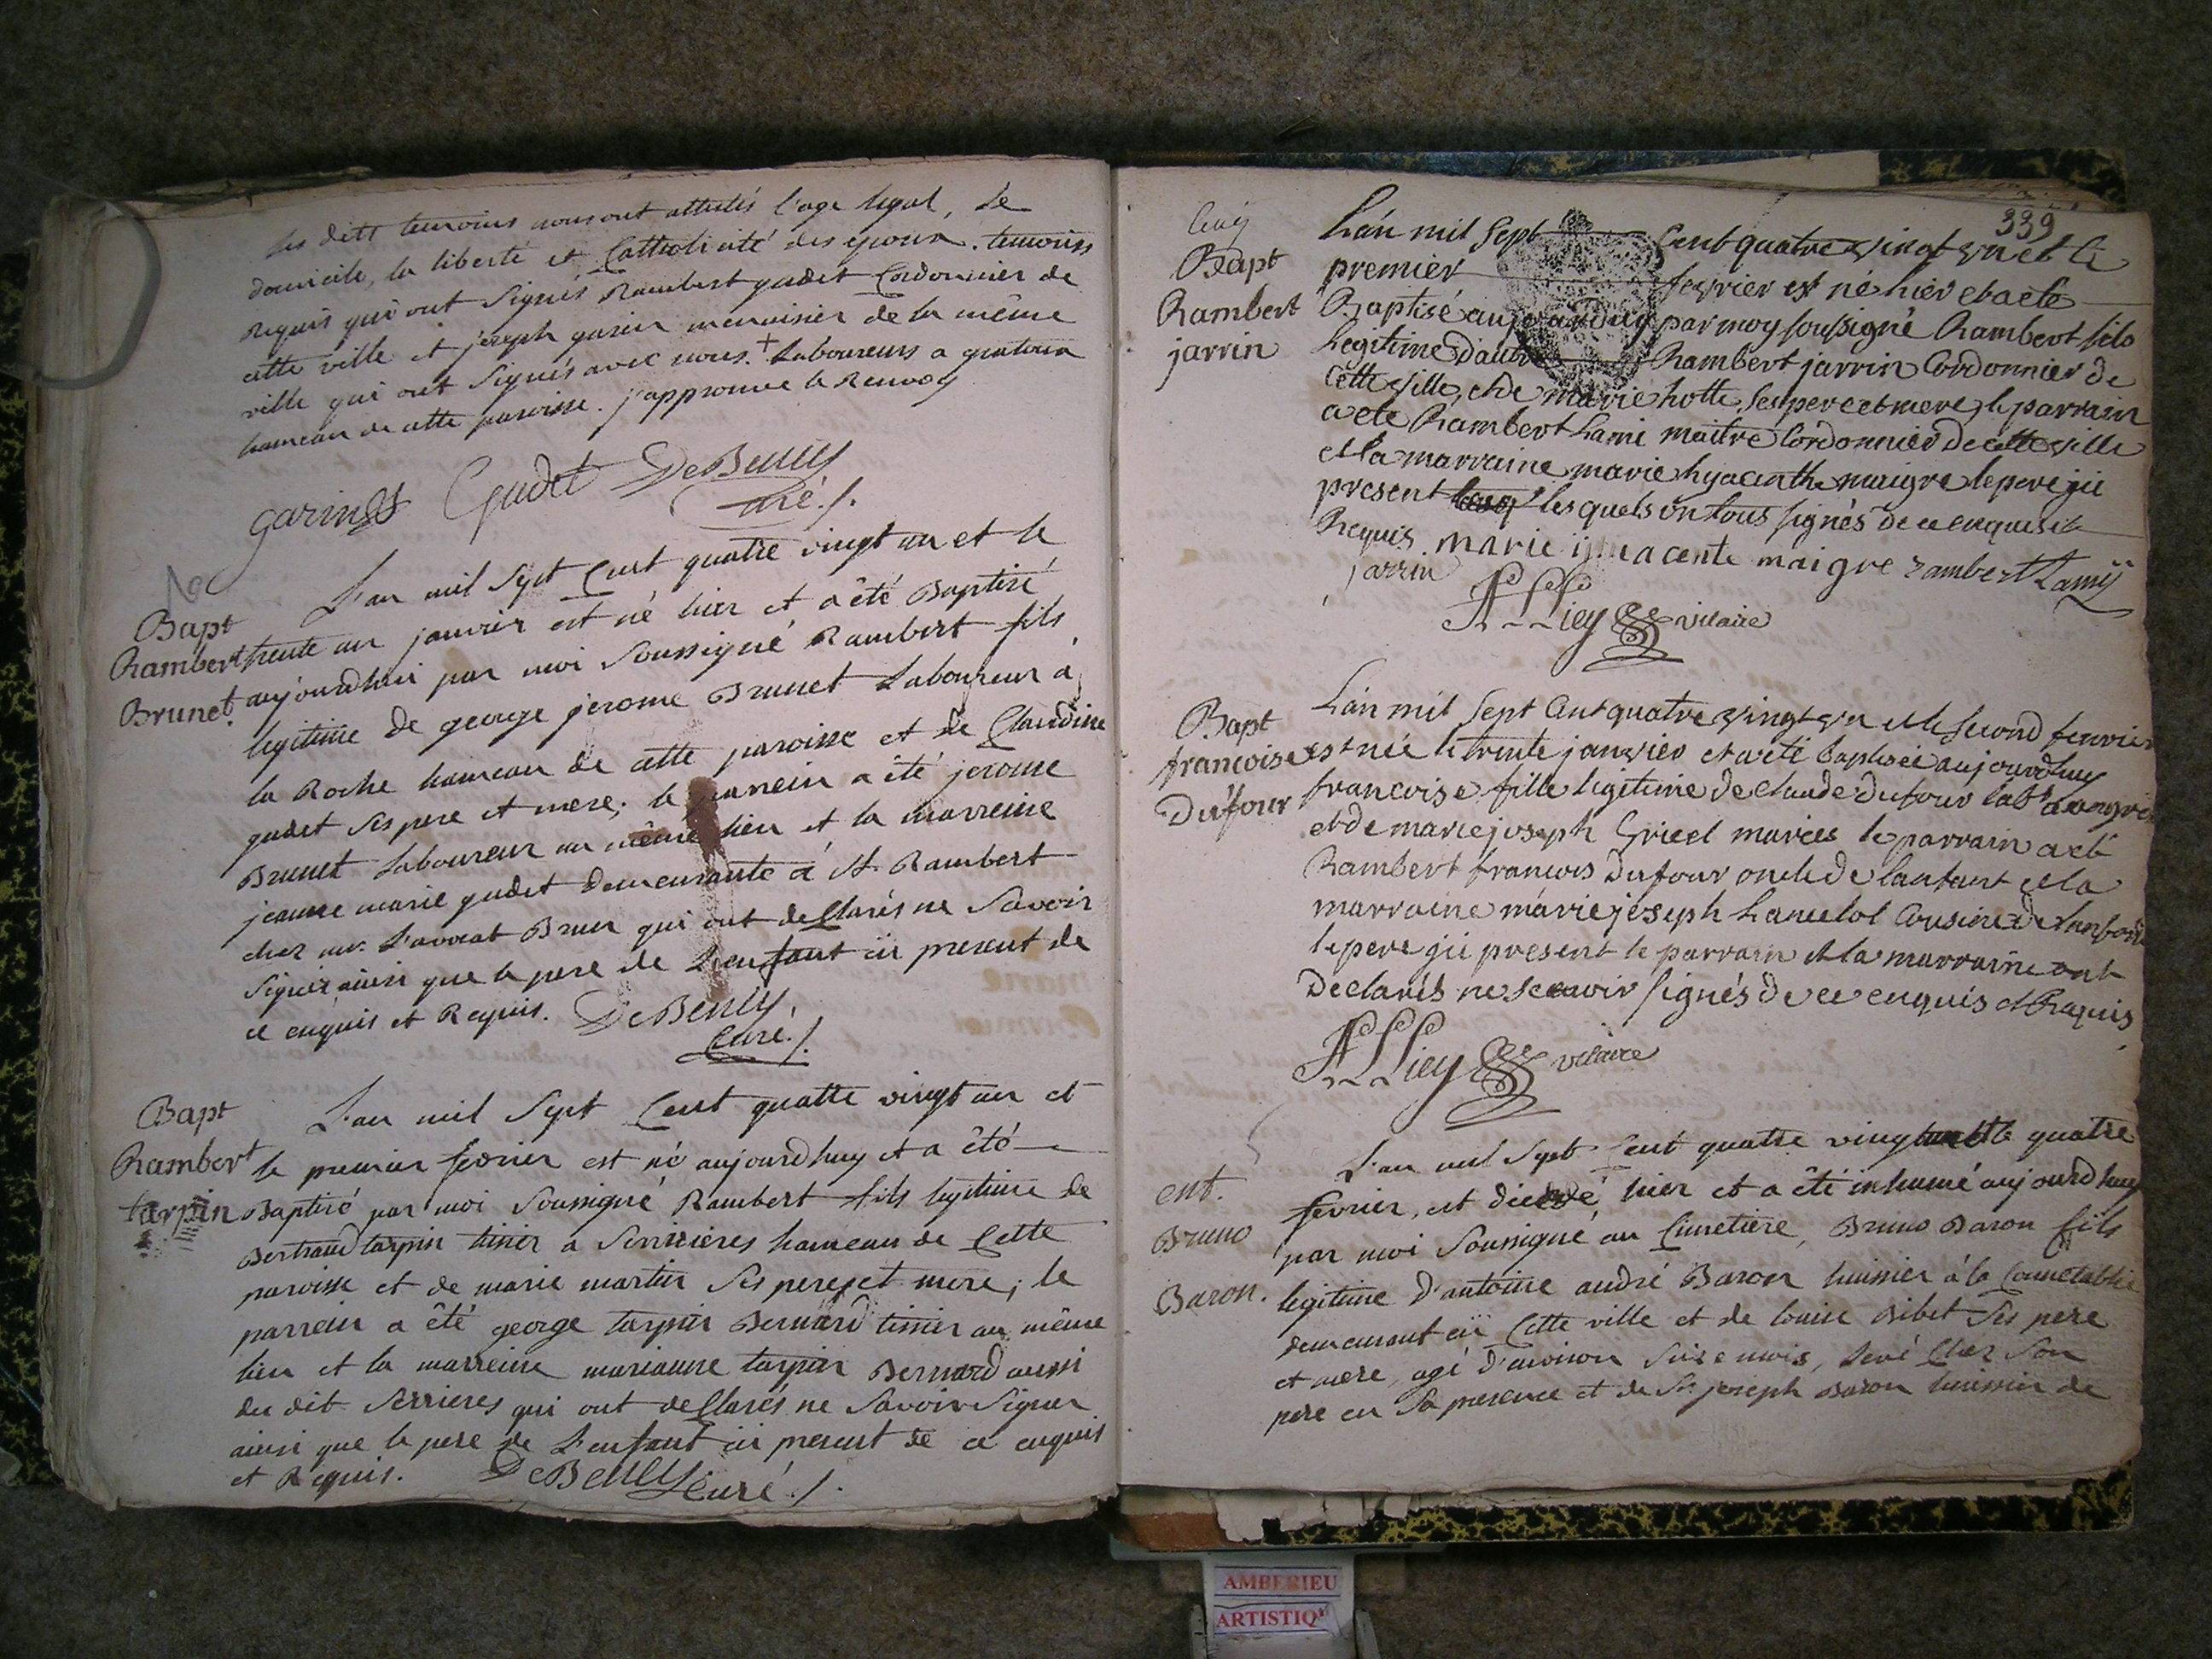 les dits temoins nous ont attestés l'age legal, le
domicile, la liberté et Catholicité des epoux. temoins
requis qui ont signés Rambert gudet Cordonnier de
cette ville et joseph garin menuisier de la même
ville qui ont signés avec nous. + Laboureurs a
hameau de cette paroisse. j'approuve le Renvoy
garin Gudet DeBeully
curé ./.
Bapt
Rambert
Brunet.
L'an mil sept Cent quatre vingt un et le
trente un janvier est né hier et a été Baptisé
aujourdhui par moi soussigné Rambert fils
legitime de george jerome Brunet Laboureur à
la Roche hameau de cette paroisse et de Claudine
gudet ses pere et mere; le parrein a été jerome
Brunet Laboureur au même lieu et la marreine
jeanne marie gudet demeurante à st. Rambert
chez mr. L'avocat Brun qui ont deClarés ne savoir
signer ainsi que le pere de L'enfant ici present de
ce enquis et Requis. DeBeully
Curé ./.
Bapt
Rambert
tarpin
L'an mil sept Cent quatre vingt un et
le premier fevrier est né aujourdhuy et a été
Baptisé par moi soussigné Rambert fils legitime de
Bertrand tarpin tisser a Serrieres hameau de Cette
paroisse et de marie martin ses pere et mere; le
parrein a été george tarpin Bernard tissier au même
lieu et la marreine marianne tarpin Bernard aussi
du dit Serrieres qui ont deClarés ne savoir signer
ainsi que le pere de L'enfant ici present de ce enquis
et Requis. DeBeully Curé ./.
339
Bapt
Rambert
jarrin
L'án mil sept Cent quatre vingt un et le
premier fevrier est né hier et a eté
Baptisé aujourdhuy par moy soussigné Rambert fils
Legitime d'autre Rambert jarrin Cordonnier de
Cette ville, et de marie hotte, ses pere et mere, le parrain
a eté Rambert Lami maitre Cordonnier de cette ville
et la marraine marie hyacinthe maigre le pere ici
present lesquels ont tous signés de ce enquis et
Requis. marie maigre rambert Lamÿ
jarrin
vicaire
Bapt
francoise
Dufour
L'án mil sept Cent quatre vingt un et le second fevrier
est née le trente janvier et a eté baptisée aujourdhuy
francoise fille legitime de Claude Dufour
et de marie joseph mariés le parrain a eté
Rambert francois Dufour oncle de lanfant et la
marraine marie joseph Lancelot Cousine de lanfant
le pere ici present le parrain et la marraine ont
Declarés ne scavoir signés de ce enquis et Requis
vicaire
ent.
Bruno
Baron.
L'an mil sept Cent quatre vingt un et le quatre
fevrier, est decedé hier et a été inhumé aujourdhuy
par moi soussigné au Cimetiere, Bruno Baron fils
legitime d'antoine andré Baron huissier à la Connetablie
demeurant en Cette ville et de louise Bibet ses pere
et mere, agé d'environ seize mois, levé Chez son
pere en sa presence et de sr. joseph Baron huissier de